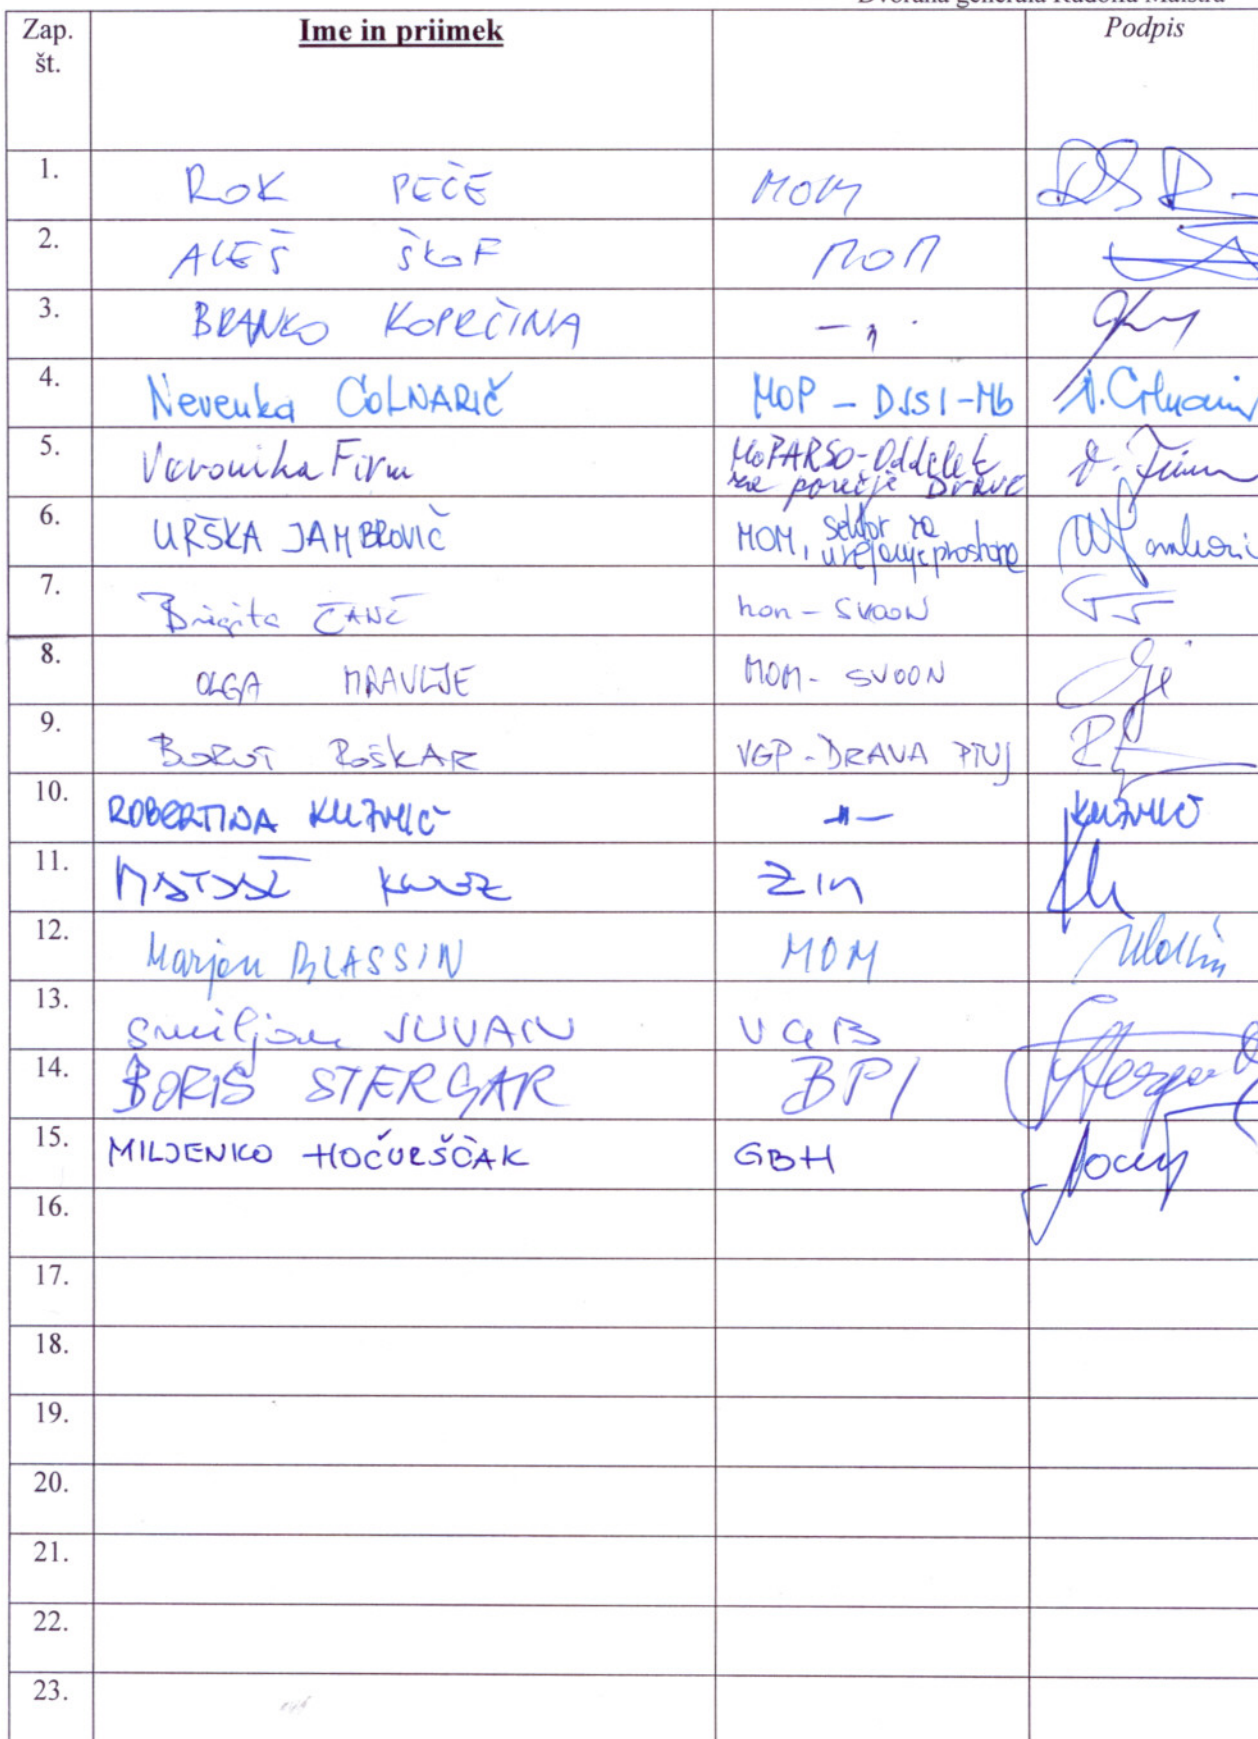 Dvorana generala Rudolfa Maistra
Zap. št. Ime in priimek Podpis
1. ROK PEČE MOM
2. ALEŠ ŠKOF MOM
3. BRANKO KOPRČINA - " -
4. Nevenka COLNARIČ MOP - DJSI-Mb N. Colnarič
5. Veronika Firm MOPARSO-Oddelek za porečje Drave V. Firm
6. URŠKA JAMBROVIČ MOM, sektor za urejanje prostora
7. Brigita ČANČ MOM - SVOON
8. OLGA MRAVLJE MOM - SVOON
9. BORUT ROŠKAR VGP - DRAVA PTUJ
10. ROBERTINA KUZMIČ -"- KUZMIČ
11. ZIM
12. Marjan BLASSIN MOM
13. Smiljan JUVAN VGB
14. BORIS STERGAR BPI
15. MILJENKO HOČURŠČAK GBH
16.
17.
18.
19.
20.
21.
22.
23.